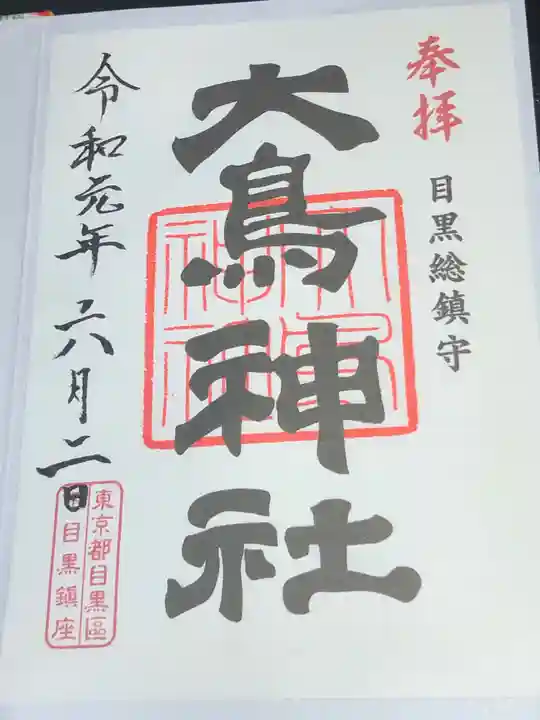 奉拝
目黒総鎮守
大鳥神社
令和元年六月二日
東京都目黒區
目黒鎮座